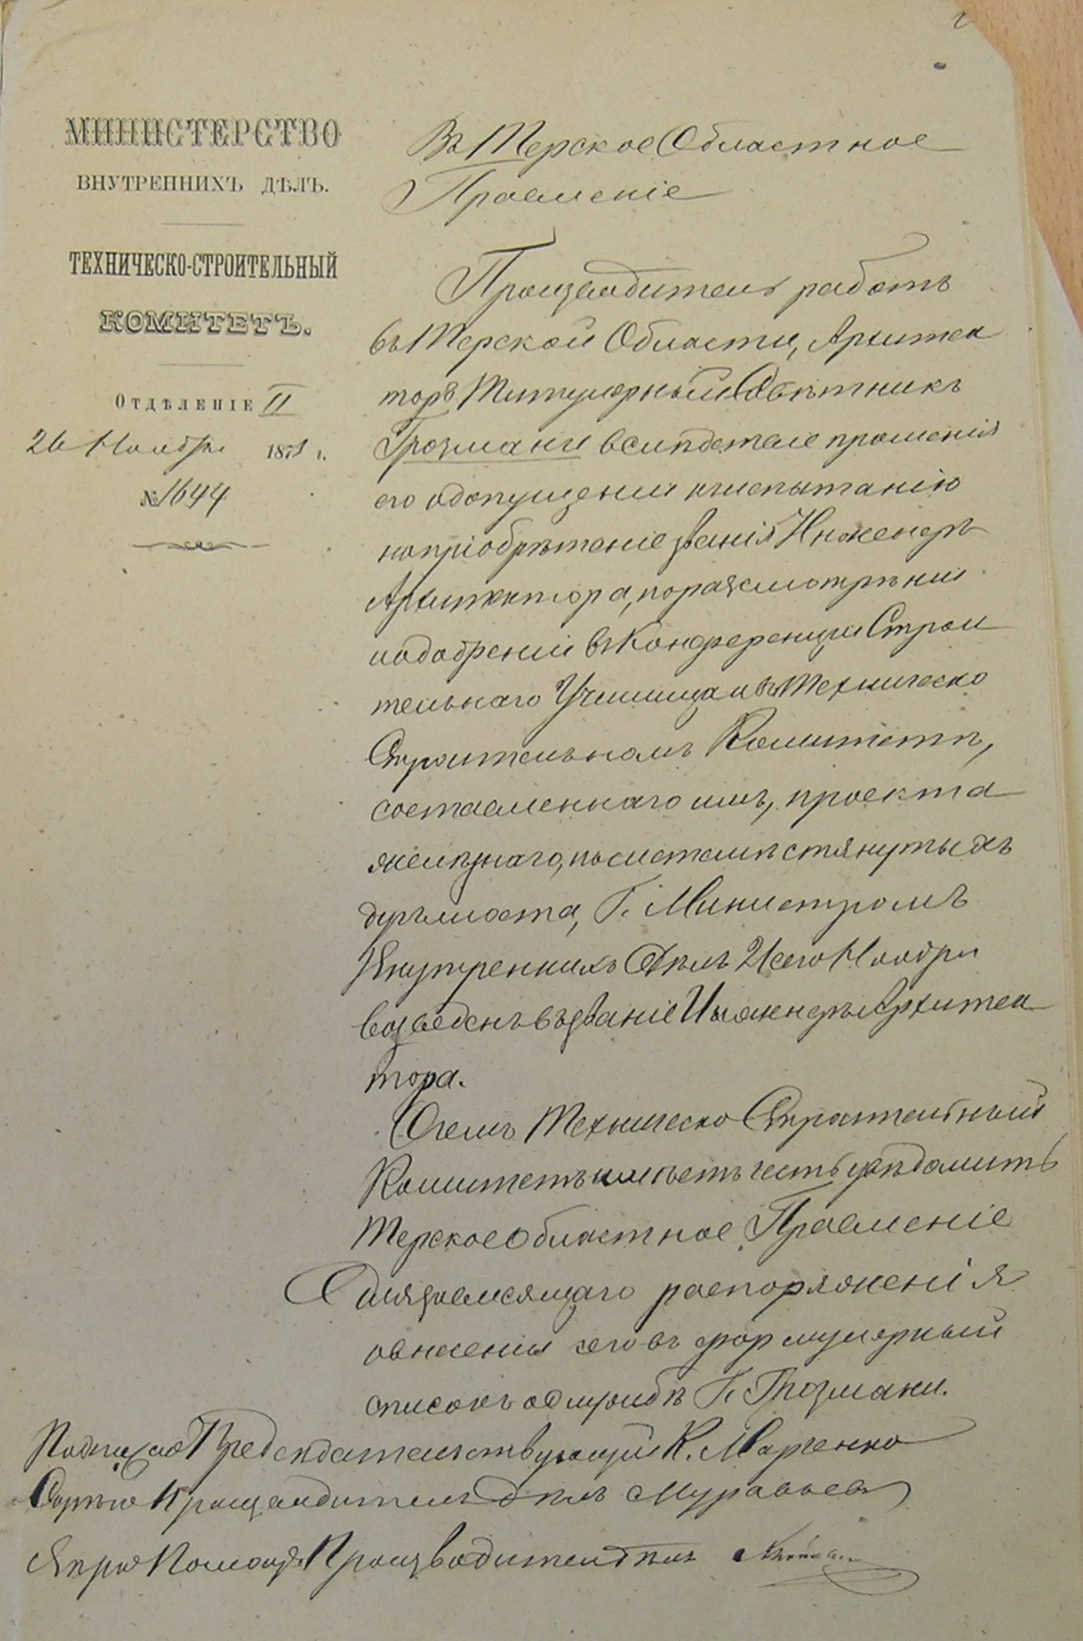 МИНИСТЕРСТВО
ВНУТРЕННИХЪ ДѢЛЪ.
ТЕХНИЧЕСКО-СТРОИТЕЛЬНЫЙ
КОМИТЕТЪ.
ОТДѢЛЕНІЕ II
26 Ноября 1871 г.
№ 1644
Въ Терское Областное
Правленіе
Производитель работъ
въ Терской Области, Архитек
торъ Титулярный Совѣтникъ
Грозмани вслѣдствіе прошенія
его о допущеніи къ испытанію
на пріобрѣтеніе званія Инженеръ
Архитектора, по разсмотрѣніи
и одобреніи въ Конференціи Строи
тельнаго Училища и въ Техническо
Строительномъ Комитетѣ,
составленнаго имъ, проекта
желѣзнаго, по системѣ стянутыхъ
дугъ моста, Г. Министромъ
Внутреннихъ Дѣлъ 21 сего Ноября
возведенъ въ званіе Инженеръ Архитек
тора.
О семъ Техническо Строительный
Комитетъ имѣетъ честь увѣдомить
Терское Областное Правленіе
для зависящаго распоряженія
о внесеніи сего въ формулярный
списокъ о службѣ Г. Грозмани.
Подписалъ Предсѣдательствующій К. Марченко
Скрѣпилъ Производитель Дѣлъ Муравьевъ
Вѣрно Помощ. Производителя Дѣлъ